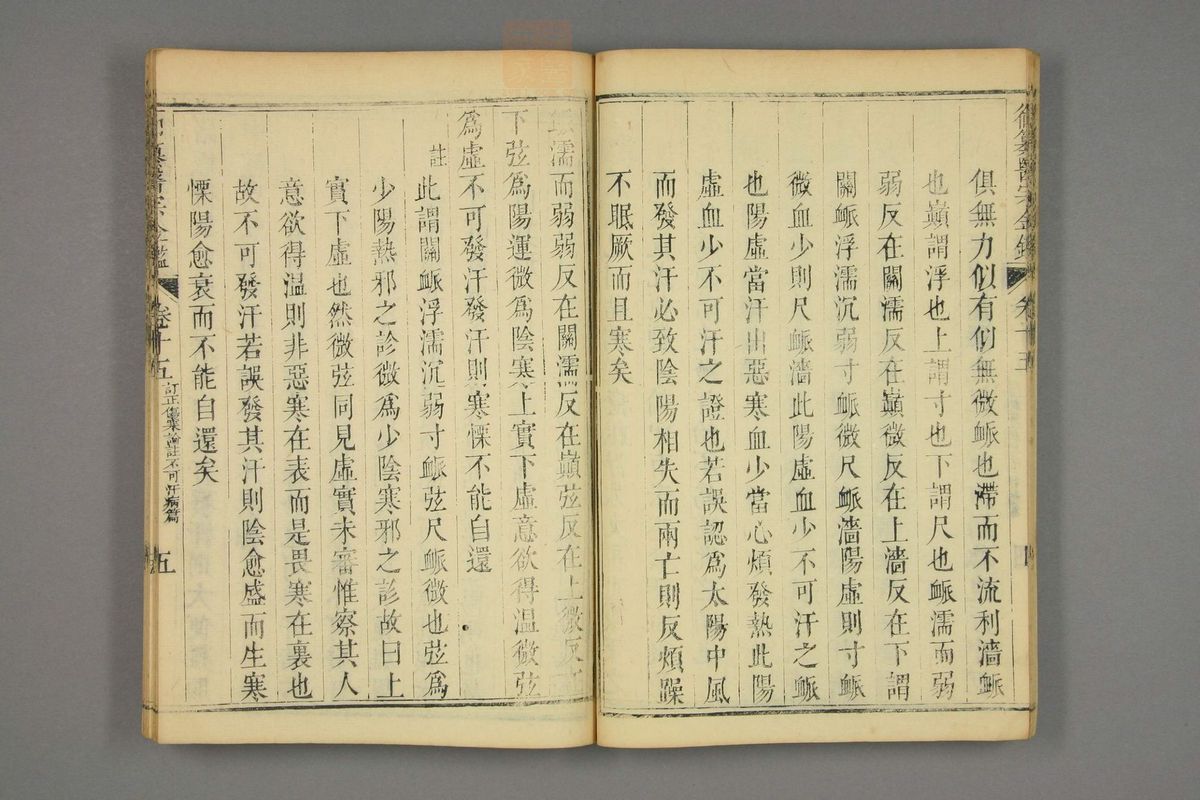 俱無力似有似無微䘑也滯而不流利濇䘑
也巔謂浮也上謂寸也下謂尺也䘑濡而弱
弱反在關濡反在巔微反在上濇反在下謂
關䘑浮濡沉弱寸䘑微尺䘑濇陽虛則寸䘑
微血少則尺䘑濇此陽虛血少不可汗之䘑
也陽虛當汗出惡寒血少當心煩發熱此陽
虛血少不可汗之證也若誤認爲太陽中風
而發其汗必致陰陽相失而兩亡則反煩躁
不眠厥而且寒矣
濡而弱弱反在關濡反在巔弦反在上微反在
下弦爲陽運微爲陰寒上實下虛意欲得溫微弦
爲虛不可發汗發汗則寒慄不能自還
註
此謂關䘑浮濡沉弱寸䘑弦尺䘑微也弦爲
少陽熱邪之診微爲少陰寒邪之診故曰上
實下虛也然微弦同見虛實未審惟察其人
意欲得溫則非惡寒在表而是畏寒在裏也
故不可發汗若誤發其汗則陰愈盛而生寒
慄陽愈衰而不能自還矣
卷十五 訂正傷寒論註不可汗病篇 五